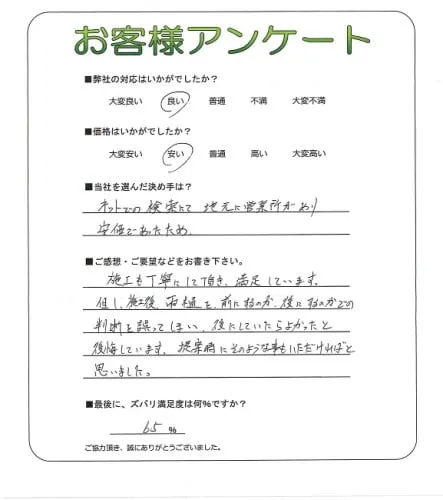 お客様アンケート
■弊社の対応はいかがでしたか？
大変良い 良い 普通 不満 大変不満
■価格はいかがでしたか？
大変安い 安い 普通 高い 大変高い
■当社を選んだ決め手は？
ネットでの検索にて 地元に営業所があり
安価であったため
■ご感想・ご要望などをお書き下さい。
施工も丁寧にして頂き、満足しています。
但し、施工後、雨樋を、前にするのか、後にするのかでの
判断を誤ってしまい、後にしていたらよかったと
後悔しています。提案時にそのような事もいただければと
思いました。
■最後に、ズバリ満足度は何%ですか？
65 %
ご協力頂き、誠にありがとうございました。